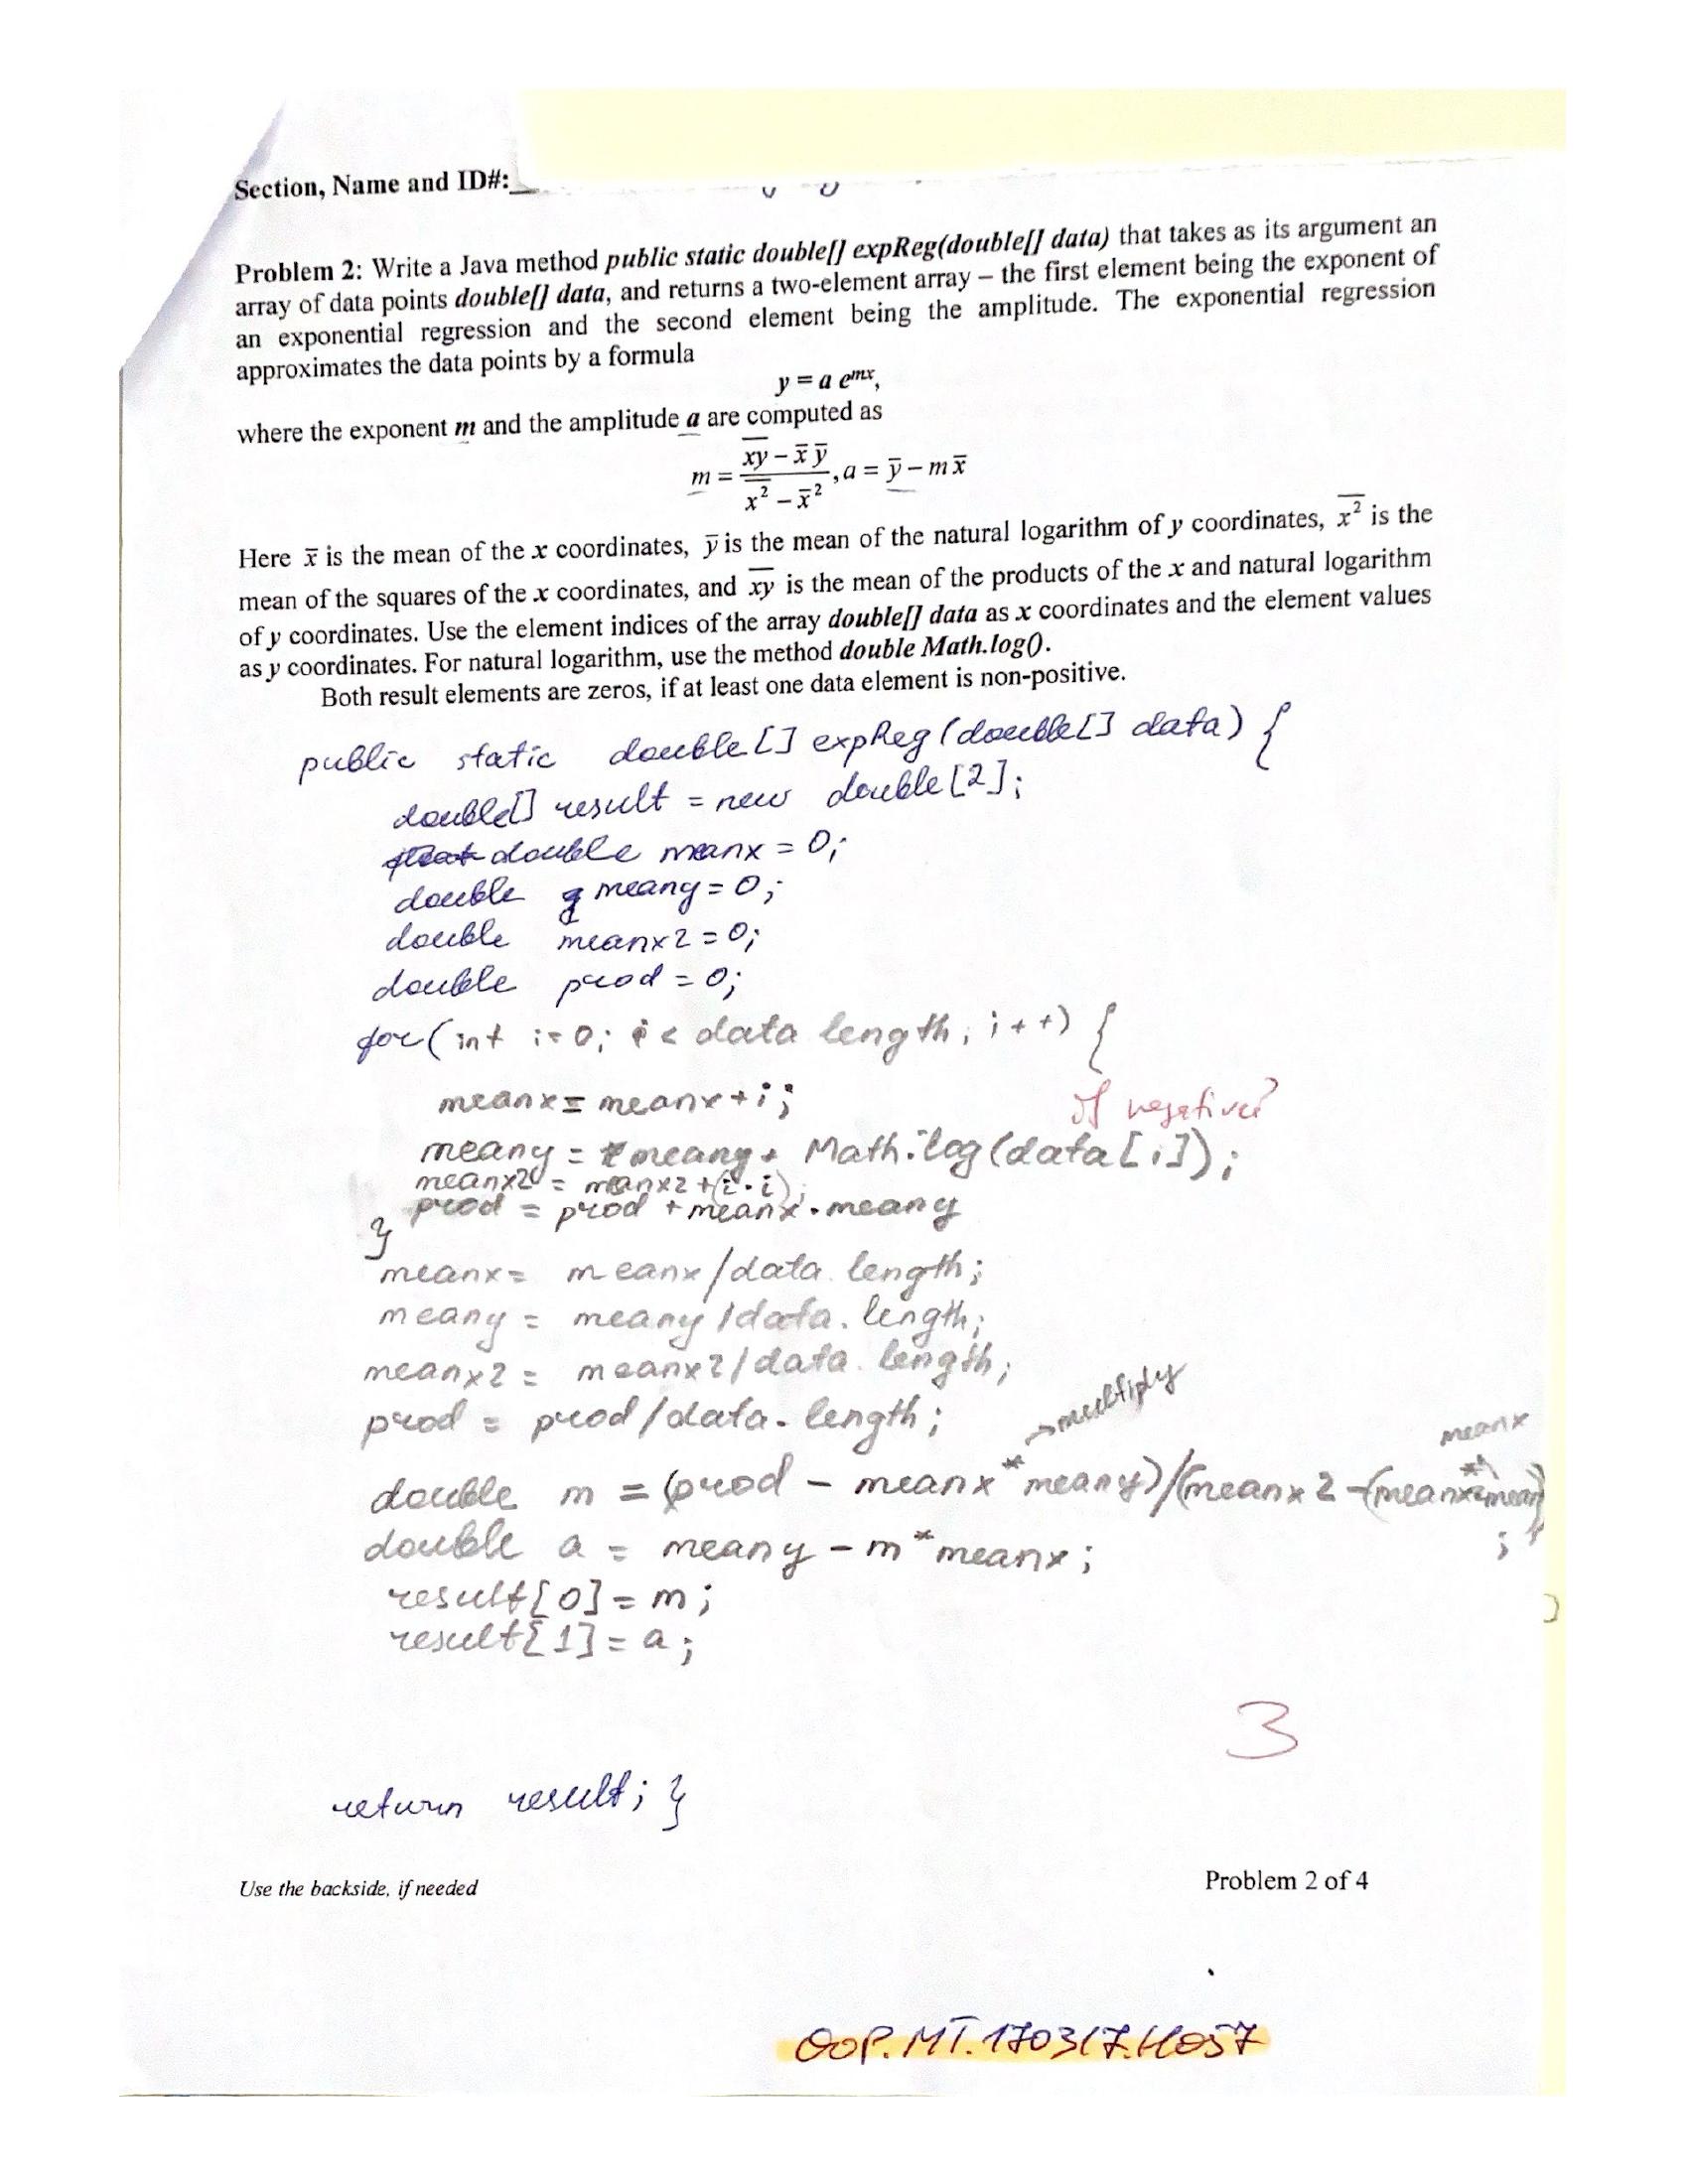 Section, Name and ID#:
Problem 2: Write a Java method public static double[] expReg(double[] data) that takes as its argument an
array of data points double[] data, and returns a two-element array – the first element being the exponent of
an exponential regression and the second element being the amplitude. The exponential regression
approximates the data points by a formula
y = a e^{mx},
where the exponent m and the amplitude a are computed as
m = \frac{\overline{xy} - \bar{x}\,\bar{y}}{\overline{x^2} - \bar{x}^2}, a = \bar{y} - m\bar{x}
Here \bar{x} is the mean of the x coordinates, \bar{y} is the mean of the natural logarithm of y coordinates, \overline{x^2} is the
mean of the squares of the x coordinates, and \overline{xy} is the mean of the products of the x and natural logarithm
of y coordinates. Use the element indices of the array double[] data as x coordinates and the element values
as y coordinates. For natural logarithm, use the method double Math.log().
Both result elements are zeros, if at least one data element is non-positive.
public static double[] expReg(double[] data) {
double[] result = new double[2];
double meanx = 0;
double meany = 0;
double meanx2 = 0;
double prod = 0;
for(int i=0; i < data length; i++) {
meanx = meanx+i;
if negative?
meany = meany + Math.log(data[i]);
meanx2 = meanx2 +(i·i);
prod = prod + meanx·meany
}
meanx = meanx/data.length;
meany = meany/data.length;
meanx2 = meanx2/data.length;
prod = prod/data.length;
→multiply
meanx
double m = (prod - meanx*meany)/(meanx2-(meanx*
;
double a = meany - m*meanx;
result[0] = m;
result[1] = a;
3
return result; }
Use the backside, if needed
Problem 2 of 4
OOP.MT.170317.H057